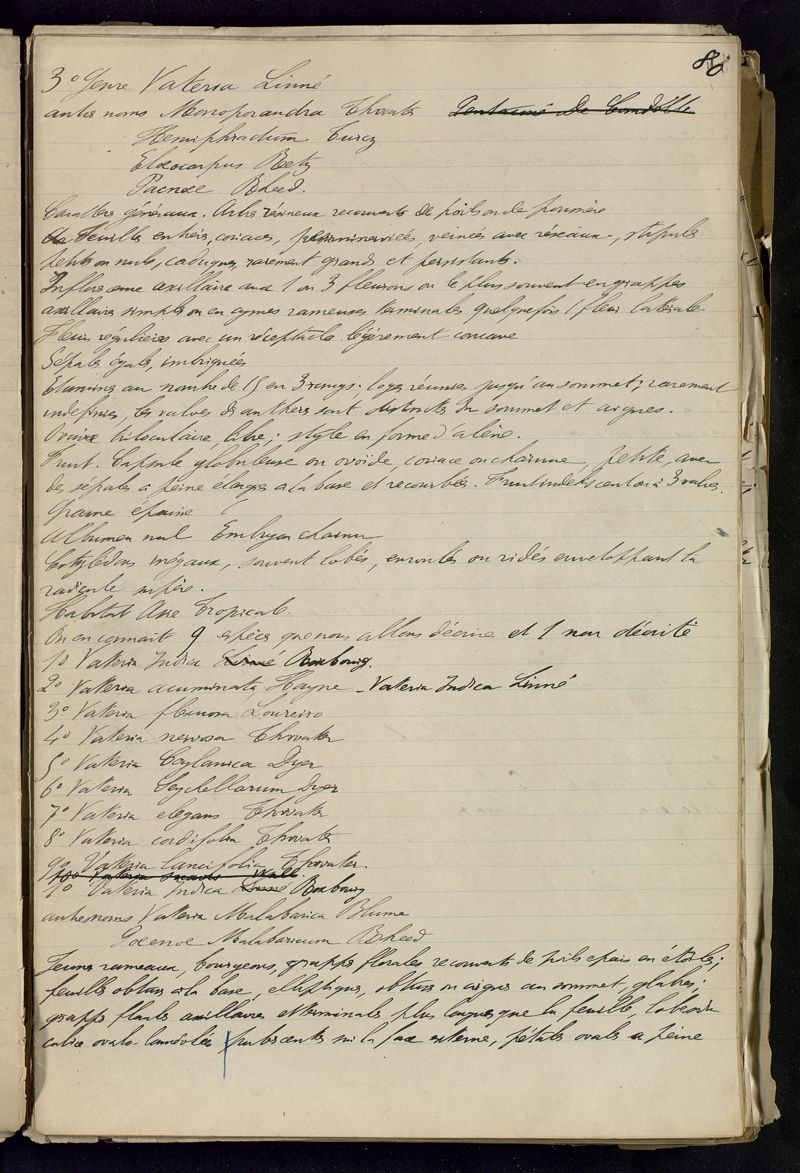 80
3° Genre Vateria Linné
autres noms Monoporandra Thwaites Pentacmé De Candolle
Hemiphractum Turcz
Elaeocarpus Retz
Paenoe Rheed.
Caractères généraux. Arbres résineux recouverts de poils ou de poussière
Feuilles entières, coriaces, penninerviées, veinées avec réseaux, stipules
petites ou nuls, caduques, rarement grands et persistants.
Inflorescence axillaire avec 1 ou 3 fleurons ou le plus souvent en grappes
axillaires simples ou en cymes rameuses terminales quelquefois 1 fleur latérale
Fleurs régulières avec un réceptacle légèrement concave
Sépales égales, imbriquées
Etamines au nombre de 15 en 3 rangs; loges réunies jusqu'au sommet; rarement
indéfinies, les valves des anthères sont distinctes du sommet et aigues.
Ovaire triloculaire, libre; style en forme d'alène.
Fruit. Capsule globuleuse ou ovoïde, coriace ou charnue, petite, avec
des sépales à peine élargies à la base et recourbées. Fruit indéhiscent ou à 3 valves.
Graine épaisse
Albumen nul Embryon charnu
Cotylédons inégaux, souvent lobés, enroulés ou ridés enveloppant la
radicule supère.
Habitat Asie Tropicale.
On en connait 9 espèces que nous allons décrire et 1 non décrite
1° Vateria Indica Linné Roxbourg.
2° Vateria acuminata Hayne Vateria Indica Linné
3° Vateria flexuosa Loureiro
4° Vateria nervosa Thwaites
5° Vateria Ceylanica Dyer
6° Vateria Seychellarum Dyer
7° Vateria elegans Thwaites
8° Vateria cordifolia Thwaites
9° Vateria lancifolia Thwaites.
10° Vateria suavis Wall.
1° Vateria Indica Linné Roxbourg
autres noms Vateria Malabarica Blume
Paenoe Malabaricum Rheed
Jeunes rameaux, bourgeons, grappes florales recouverts de poils épais en étoiles;
feuilles obtuses à la base, elliptiques, obtuses ou aigues au sommet, glabres;
grappes florales axillaires et terminales plus longues que la feuille, lobes du
calice ovale-lancéolés pubescents sur la face externe, pétales ovales à peine